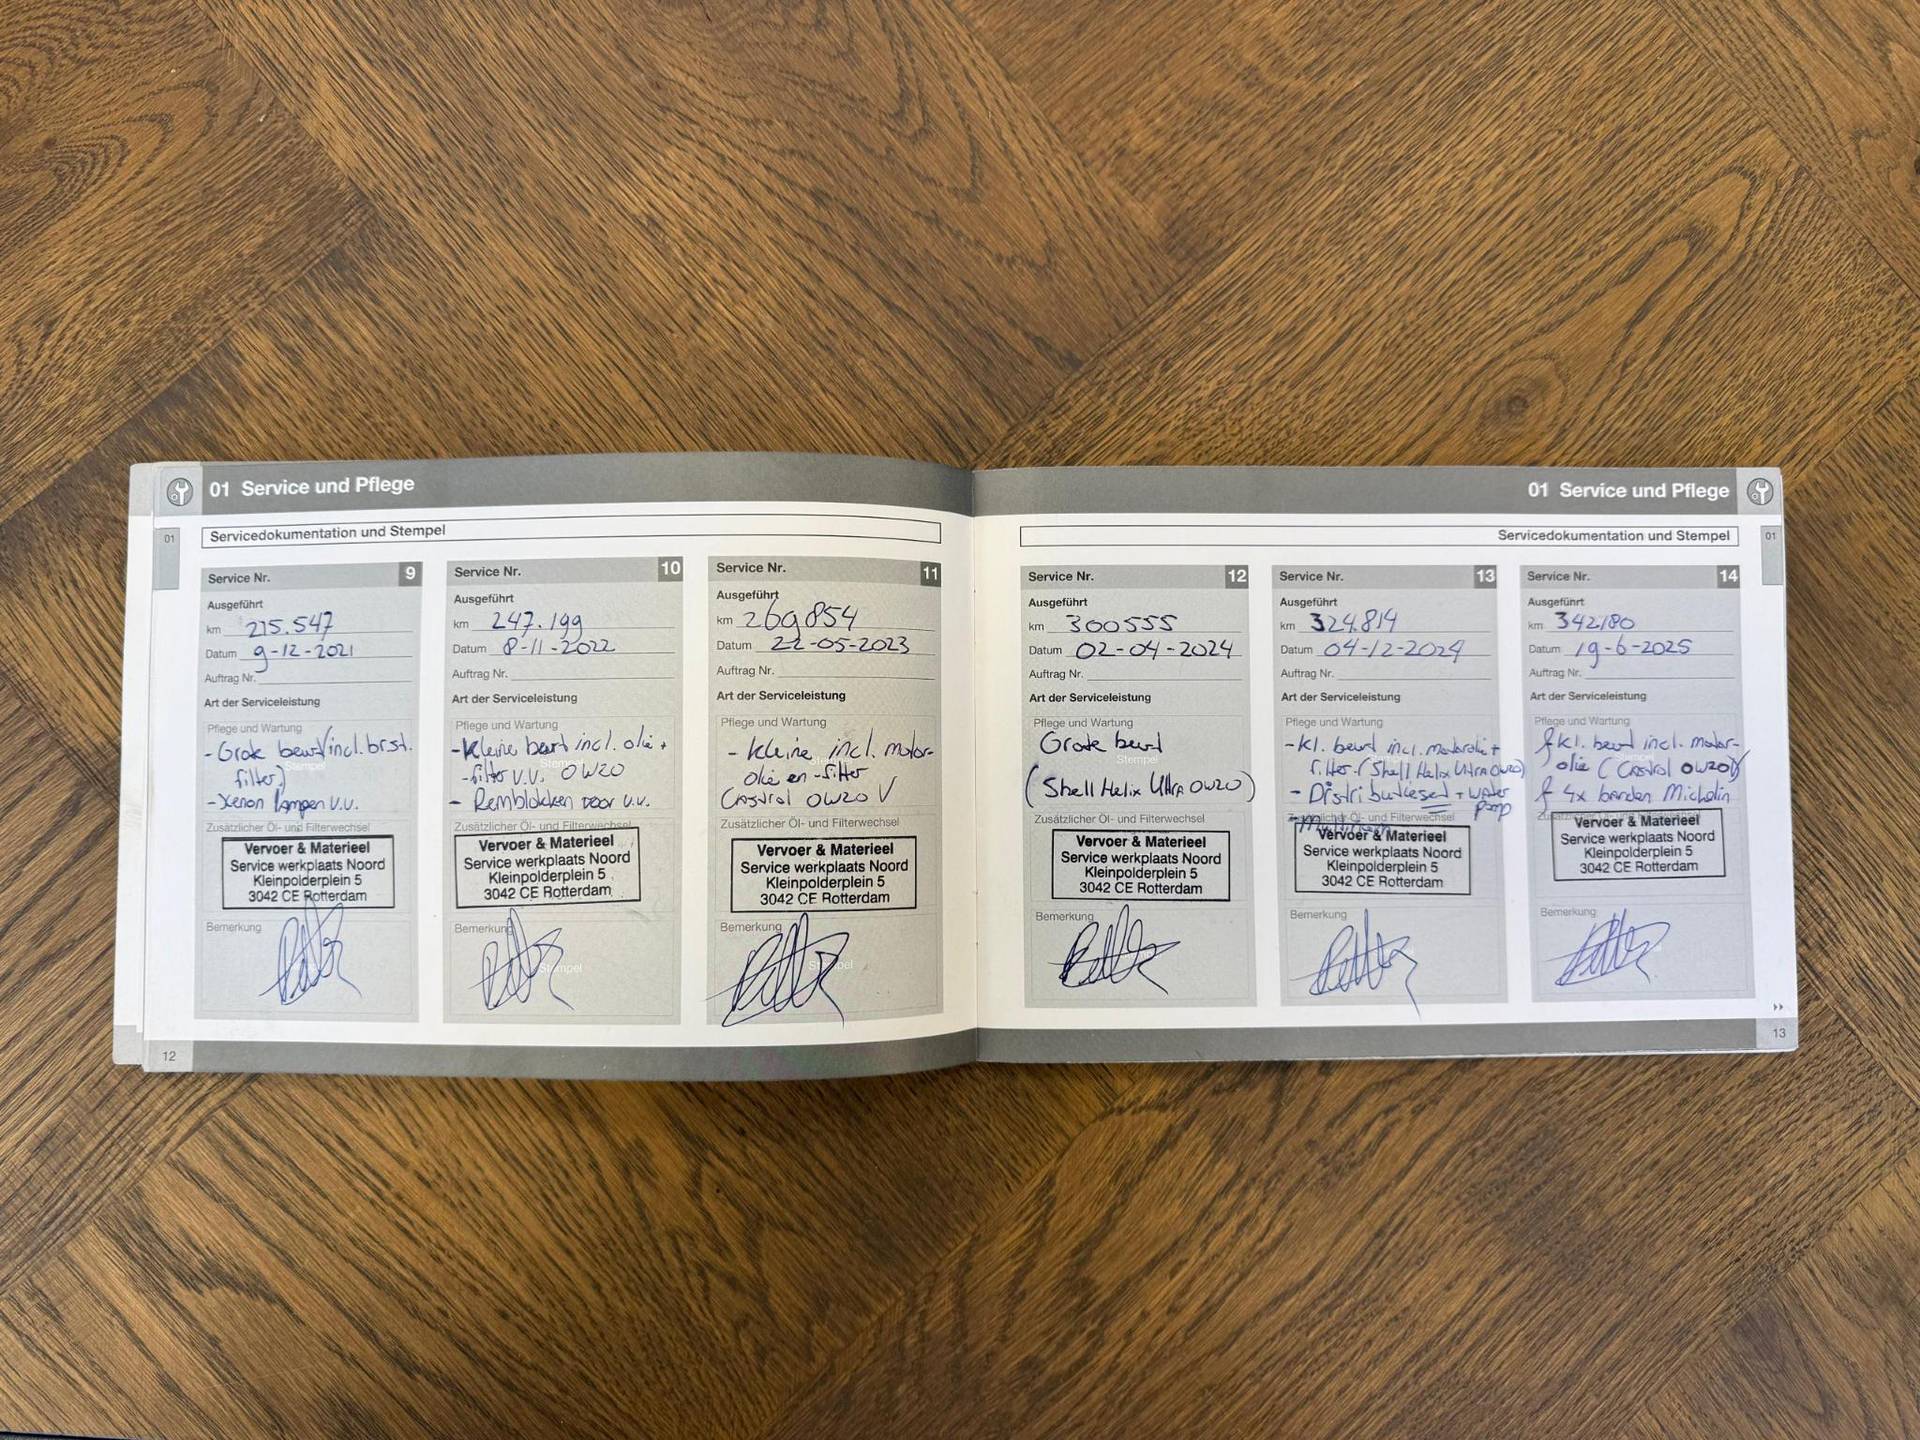 01 Service und Pflege
01
Servicedokumentation und Stempel
Service Nr. 9
Ausgeführt
km 215.547
Datum 9-12-2021
Auftrag Nr.
Art der Serviceleistung
Pflege und Wartung
- Grote beurt (incl. br.st.
filter)
Stempel
- Xenon lampen v.v.
Zusätzlicher Öl- und Filterwechsel
Vervoer & Materieel
Service werkplaats Noord
Kleinpolderplein 5
3042 CE Rotterdam
Bemerkung
Service Nr. 10
Ausgeführt
km 247.199
Datum 8-11-2022
Auftrag Nr.
Art der Serviceleistung
Pflege und Wartung
- Kleine beurt incl. olie +
- filter v.v. 0W20
- Remblokken voor v.v.
Zusätzlicher Öl- und Filterwechsel
Vervoer & Materieel
Service werkplaats Noord
Kleinpolderplein 5
3042 CE Rotterdam
Bemerkung
Stempel
Service Nr. 11
Ausgeführt
km 269854
Datum 22-05-2023
Auftrag Nr.
Art der Serviceleistung
Pflege und Wartung
- Kleine incl. motor-
olie en -filter
Castrol 0W20 V
Zusätzlicher Öl- und Filterwechsel
Vervoer & Materieel
Service werkplaats Noord
Kleinpolderplein 5
3042 CE Rotterdam
Bemerkung
Stempel
12
01 Service und Pflege
Servicedokumentation und Stempel
01
Service Nr. 12
Ausgeführt
km 300555
Datum 02-04-2024
Auftrag Nr.
Art der Serviceleistung
Pflege und Wartung
Grote beurt
Stempel
(Shell Helix Ultra 0W20)
Zusätzlicher Öl- und Filterwechsel
Vervoer & Materieel
Service werkplaats Noord
Kleinpolderplein 5
3042 CE Rotterdam
Bemerkung
Service Nr. 13
Ausgeführt
km 324.814
Datum 04-12-2024
Auftrag Nr.
Art der Serviceleistung
Pflege und Wartung
- kl. beurt incl. motorolie +
filter (Shell Helix Ultra 0W20)
- Distributieset + water
pomp
Zusätzlicher Öl- und Filterwechsel
Vervoer & Materieel
Service werkplaats Noord
Kleinpolderplein 5
3042 CE Rotterdam
Bemerkung
Service Nr. 14
Ausgeführt
km 342180
Datum 19-6-2025
Auftrag Nr.
Art der Serviceleistung
Pflege und Wartung
kl. beurt incl. motor-
olie (Castrol 0W20V)
4x banden Michelin
Vervoer & Materieel
Service werkplaats Noord
Kleinpolderplein 5
3042 CE Rotterdam
Bemerkung
13